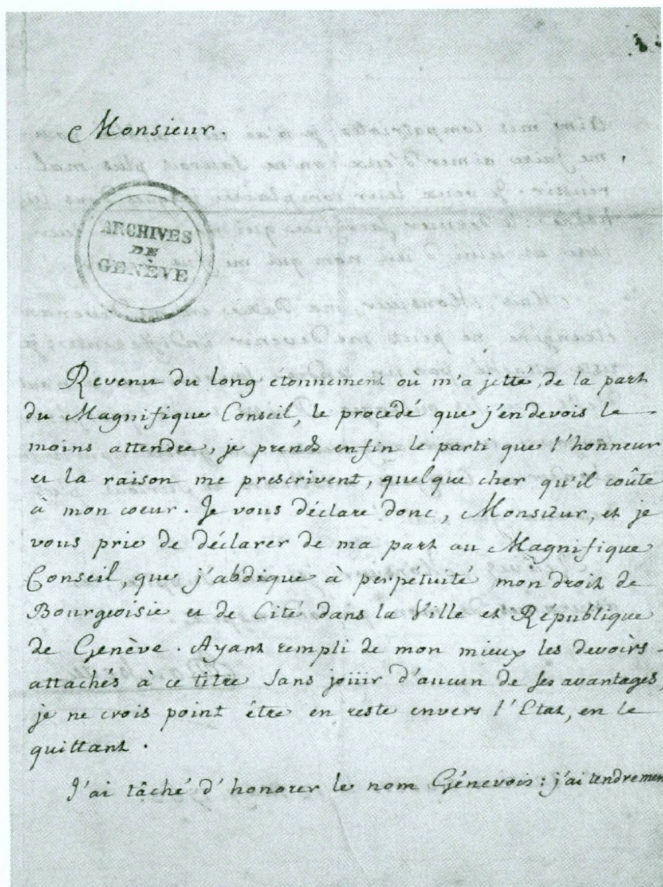 Monsieur.
ARCHIVES
DE
GENÈVE
Revenu du long etonnement ou m'a jetté, de la part
du Magnifique Conseil, le procedé que j'en devois le
moins attendre, je prends enfin le parti que l'honneur
et la raison me prescrivent, quelque cher qu'il coûte
à mon coeur. Je vous déclare donc, Monsieur, et je
vous prie de déclarer de ma part au Magnifique
Conseil, que j'abdique à perpetuité mon droit de
Bourgeoisie et de Cité dans la Ville et République
de Genève. Ayant rempli de mon mieux les devoirs
attachés à ce titre sans joüir d'aucun de ses avantages,
je ne crois point être en reste envers l'Etat, en le
quittant.
J'ai tâché d'honorer le nom Génevois: j'ai tendremen